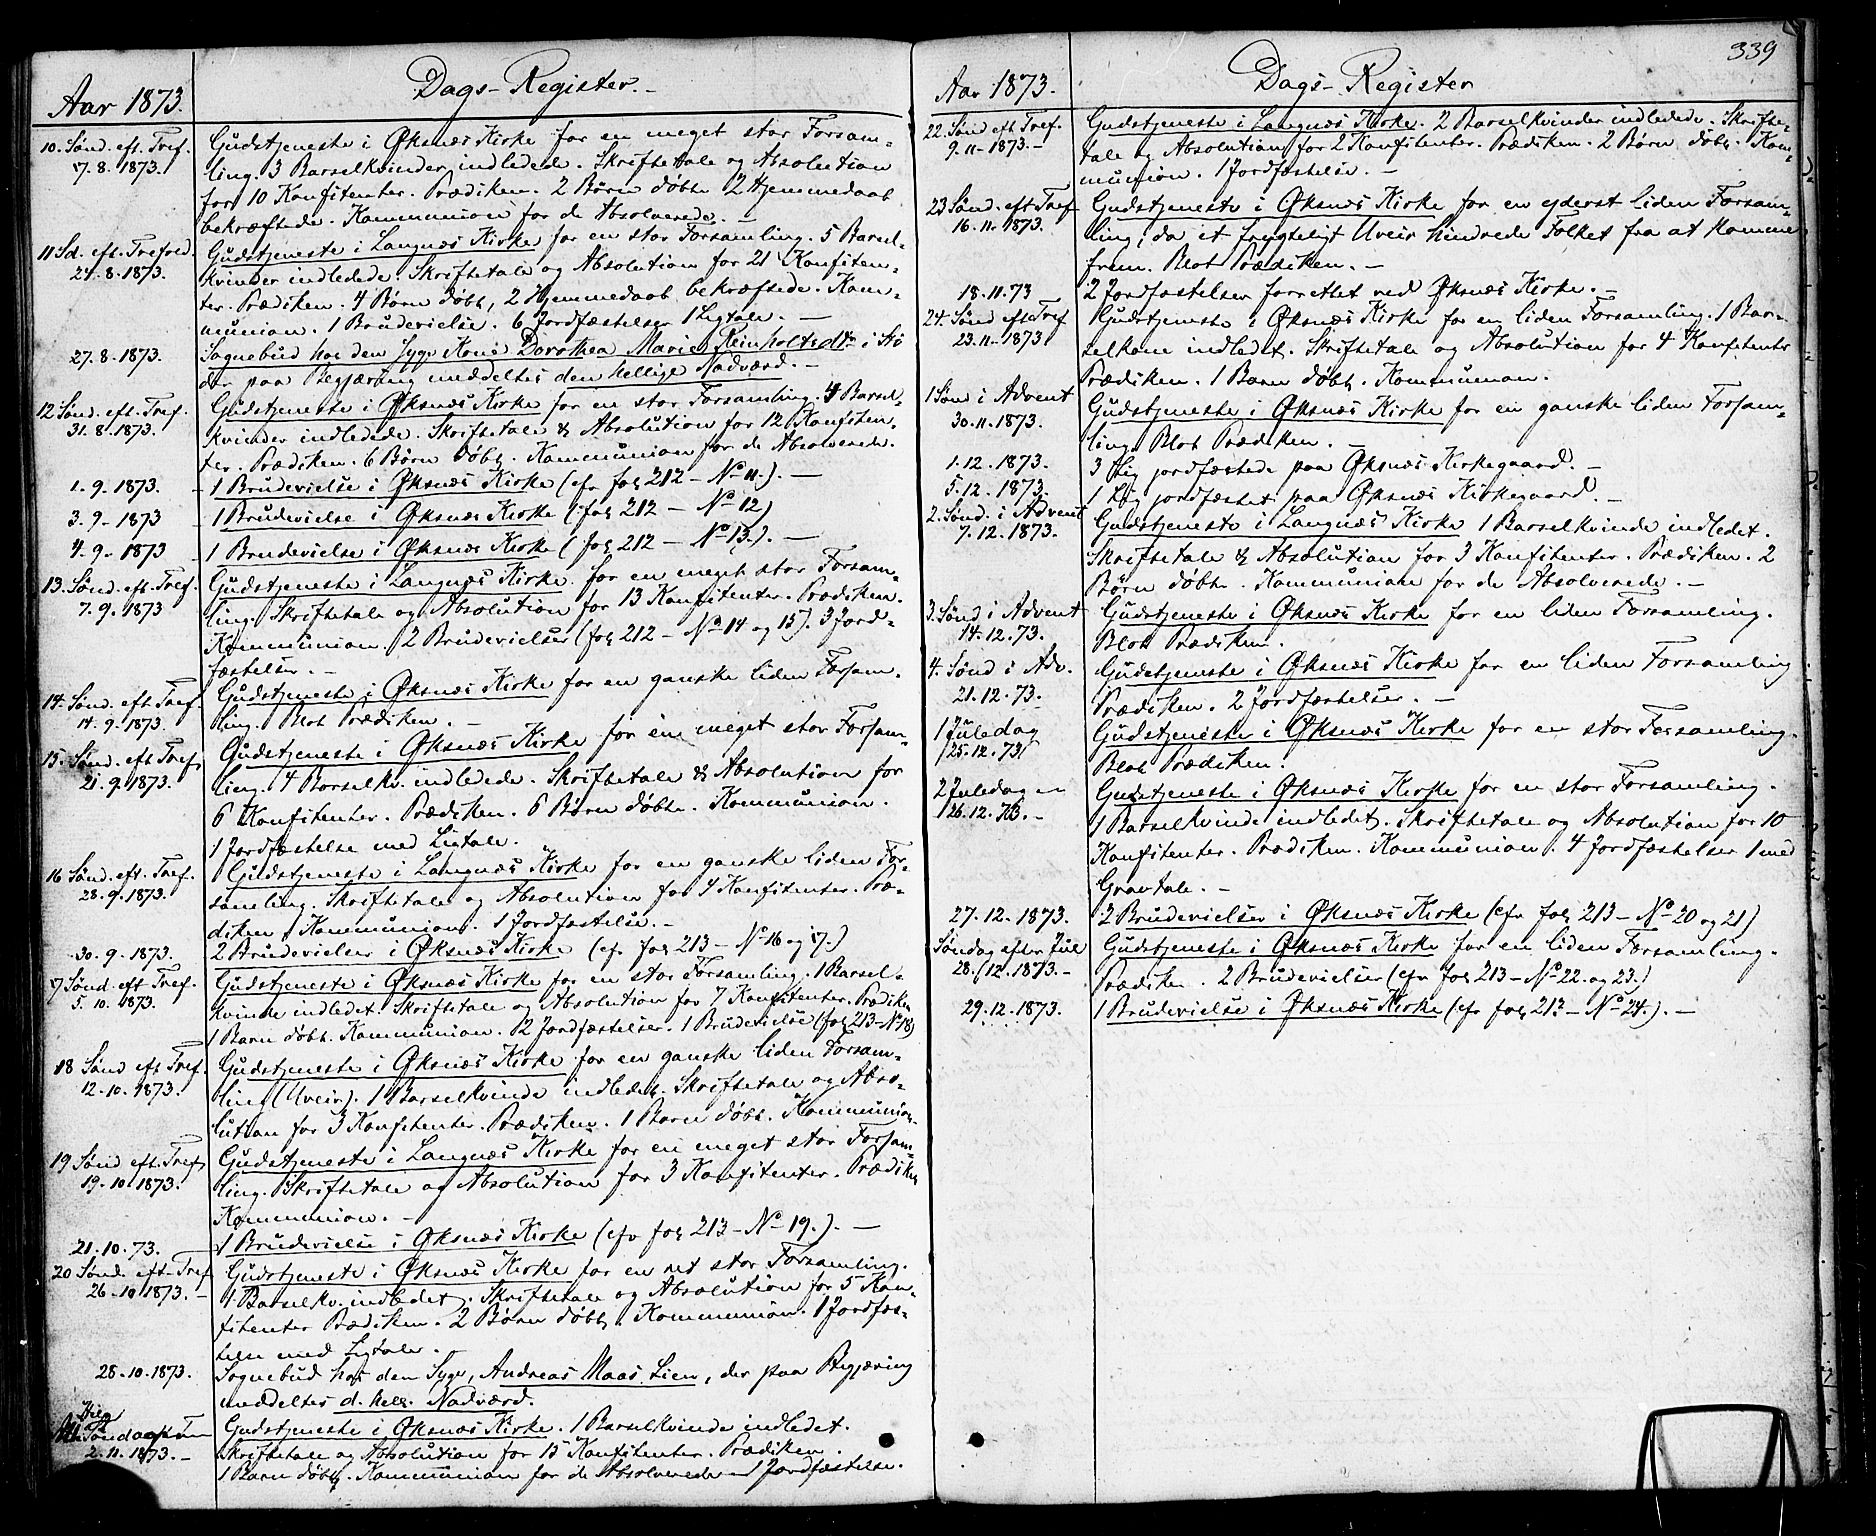 Aar 1873.
Dags-Register.-
10. Sønd. eft. Tref.
17.8.1873.
Gudstjeneste i Øksnæs Kirke for en meget stor Forsam-
ling. 3 Barselkvinder indledede. Skriftetale og Absolution
for 10 Konfitenter. Prædiken. 2 Børn døbte 2 Hjemmedaab
bekræftede. Kommunion for de Absolverede. -
11 Sd. eft. Trefold.
24.8.1873.
Gudstjeneste i Langnæs Kirke for en stor Forsamling. 5 Barsel-
kvinder indledede. Skriftetale og Absolution for 21 Konfiten-
ter. Prædiken. 4 Børn døbt, 2 Hjemmedaab bekræftede. Kom-
munion. 1 Brudevielse. 6 Jordfæstelser 1 Ligtale. -
27.8.1873.
Sognebud hos den syge Kone Dorothea Marie Reinholtsdtr i Stø
der paa Begjæring meddeltes den hellige Nadværd. -
12 Sønd. eft. Tref.
31.8.1873.
Gudstjeneste i Øksnæs Kirke for en stor Forsamling. 4 Barsel-
kvinder indledede. Skriftetale & Absolution for 12 Konfiten-
ter. Prædiken. 6 Børn døbt. Kommunion for de Absolverede.
1.9.1873. -
1 Brudevielse i Øksnæs Kirke (cfr fol 212 - No 11.). -
3.9-1873 -
1 Brudevielse i Øksnæs Kirke (fol 212 - No 12)
4.9-1873 -
1 Brudevielse i Øksnæs Kirke (fol 212 - No 13.). -
13. Sønd. eft. Tref.
7.9.1873
Gudstjeneste i Langnæs Kirke for en meget stor Forsam-
ling. Skriftetale og Absolution for 13 Konfitenter. Prædiken.
Kommunion. 2 Brudevielser (fol 212 - No 14 og 15). 3 Jord-
fæstelser. -
14. Sønd. eft Tref.
14.9.1873.
Gudstjeneste i Øksnæs Kirke for en ganske liden Forsam-
ling. Blot Prædiken. -
15. Sønd. eft Tref.
21.9.1873.
Gudstjeneste i Øksnæs Kirke for en meget stor Forsam-
ling. 4 Barselkv. indledede. Skriftetale & Absolution for
6 Konfitenter. Prædiken. 6 Børn døbte. Kommunion.
1 Jordfæstelse med Ligtale.
16 Sønd. eft. Tref.
28.9.1873.
Gudstjeneste i Langnæs Kirke for en ganske liden For-
samling. Skriftetale og Absolution for 4 Konfitenter. Præ-
diken. Kommunion. 1 Jordfæstelse. -
30.9.1873.
2 Brudevielser i Øksnæs Kirke (cfr fol 213 - No 16 og 17.)
17 Sønd. eft Tref.
5.10.1873.
Gudstjeneste i Øksnæs Kirke for en stor Forsamling. 1 Barsel-
kvinde indledet. Skriftetale og Absolution for 7 Konfitenter. Prædiken
1 Barn døbt. Kommunion. 2 Jordfæstelser. 1 Brudevielse (fol 213 - No 18)
18 Sønd eft Tref.
12.10.1873.
Gudstjeneste i Øksnæs Kirke for en ganske liden Forsam-
ling (Uveir). 1 Barselkvinde indledet. Skriftetale og Abso-
lution for 3 Konfitenter. Prædiken. 1 Barn døbt. Kommunion.
19 Sønd eft. Tref.
19.10.1873.
Gudstjeneste i Langnæs Kirke for en meget stor Forsam-
ling. Skriftetale og Absolution for 3 Konfitenter. Prædiken
Kommunion. -
21.10.73.
1 Brudevielse i Øksnæs Kirke (cfr fol 213 - No 19.). -
20 Sønd. eft. Tref
26.10.1873. -
Gudstjeneste i Øksnæs Kirke for en ret stor Forsamling.
1. Barselkv. indledet. Skriftetale og Absolution for 5 Kon-
fitenter Prædiken. 2 Børn døbt. Kommunion. 1 Jordfæs-
telse med Ligtale.
28.10.1873.
Sognebud hos den Syge, Andreas Maas Lien, der paa Begjæring
meddeltes d. hell. Nadværd.
Helg
Søndag
2.11.1873. -
Gudstjeneste i Øksnæs Kirke. 1 Barselkvinde indledet.
Skriftetale og Absolution for 15 Konfitenter. Prædiken.
1 Barn døbt. Kommunion for de Absolverede 1 Jordfæstelse.
339
Aar 1873.
Dags-Register
22. Sønd eft Tref.
9.11.1873. -
Gudstjeneste i Langnæs Kirke. 2 Barselkvinder indledede. Skrifte-
tale og Absolution for 2 Konfitenter. Prædiken. 2 Børn døbt. Kom-
munion. 1 Jordfæstelse. -
23 Sønd. eft Tref
16.11.1873.
Gudstjeneste i Øksnæs Kirke for en yderst liden Forsam-
ling, da et frygteligt Uveir hindrede Folket fra at komme
frem. Blot Prædiken. -
18.11.73
2 Jordfæstelser forrettet ved Øksnæs Kirke. -
24. Sønd eft Tref
23.11.1873
Gudstjeneste i Øksnæs Kirke for en liden Forsamling. 1 Bar-
selkone indledet. Skriftetale og Absolution for 4 Konfitenter
Prædiken. 1 Barn døbt. Kommunion.
1 Sønd i Advent
30.11.1873.
Gudstjeneste i Øksnæs Kirke for en ganske liden Forsam-
ling. Blot Prædiken. -
1.12.1873.
3 Lig jordfæstede paa Øksnæs Kirkegaard. -
5.12.1873.
1 Lig jordfæstet paa Øksnæs Kirkegaard. -
2. Sønd. i Advent
7.12.1873.
Gudstjeneste i Langnæs Kirke 1 Barselkvinde indledet.
Skriftetale & Absolution for 3 Konfitenter. Prædiken. 2
Børn døbte. Kommunion for de Absolverede. -
3. Sønd i Advent
14.12.73.
Gudstjeneste i Øksnæs Kirke for en liden Forsamling.
Blot Prædiken.
4. Sønd i Adv.
21.12.73.
Gudstjeneste i Øksnæs Kirke for en liden Forsamling
Prædiken. 2 Jordfæstelser. -
1 Juledag
25.12.73.
Gudstjeneste i Øksnæs Kirke for en stor Forsamling.
Blot Prædiken.
2 Juledag
26.12.73. -
Gudstjeneste i Øksnæs Kirke for en stor Forsamling.
1 Barselkvinde indledet. Skriftetale og Absolution for 10
Konfitenter. Prædiken. Kommunion. 4 Jordfæstelser 1 med
Gravtale. -
27.12.1873.
2 Brudevielser i Øksnæs Kirke (cfr fol 213 - No 20 og 21)
Søndag efter Jul
28.12.1873. -
Gudstjeneste i Øksnæs Kirke for en liden Forsamling.
Prædiken. 2 Brudevielser (cfr fol 213 - No 22. og 23.)
29.12.1873.
1 Brudevielse i Øksnæs Kirke (cfr fol 213 - No 24.). -